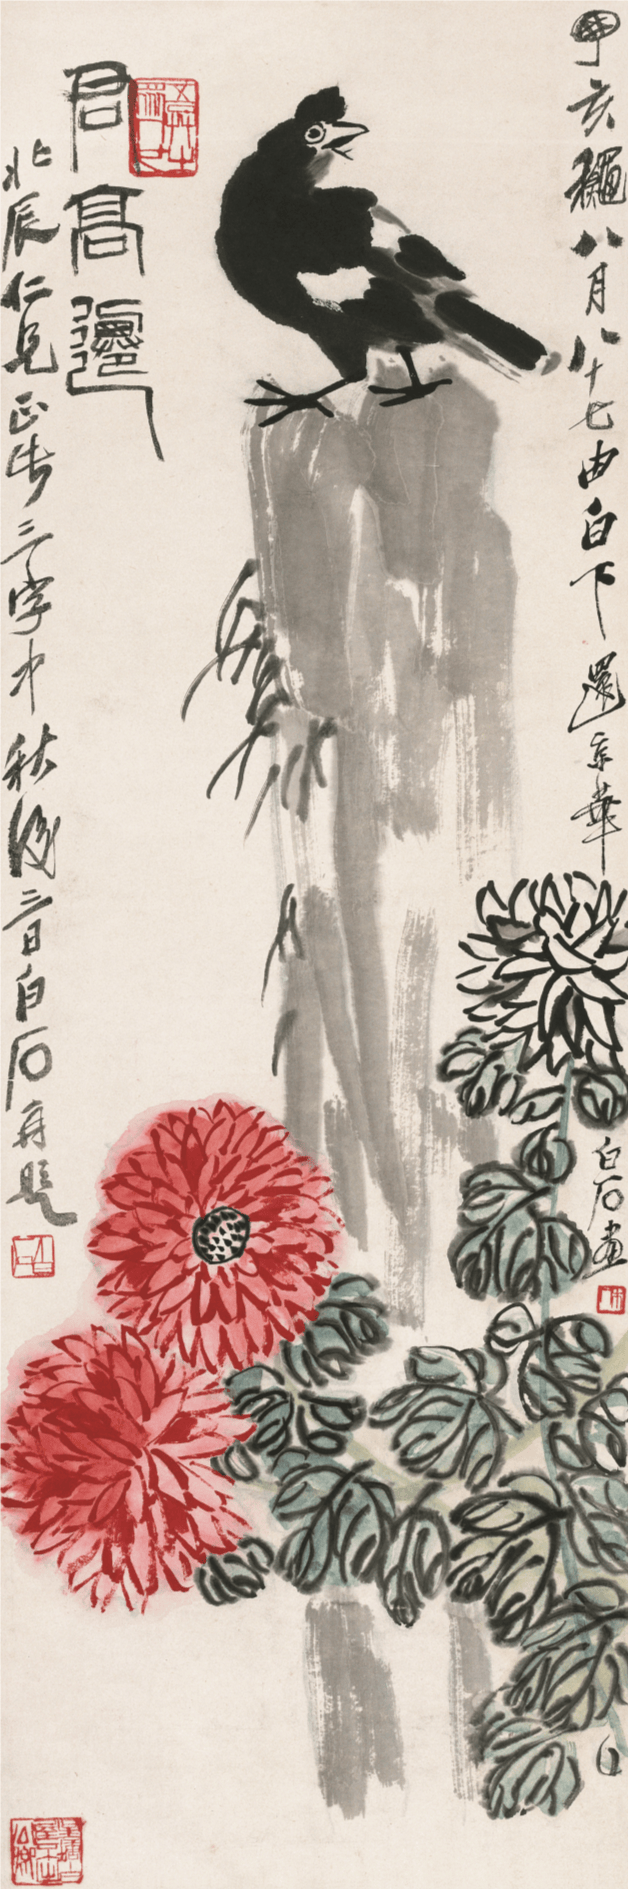 甲亥穐八月八十七由白下還京華
白石畫
君高遷
北辰仁兄正書三字中秋後三日白石再題